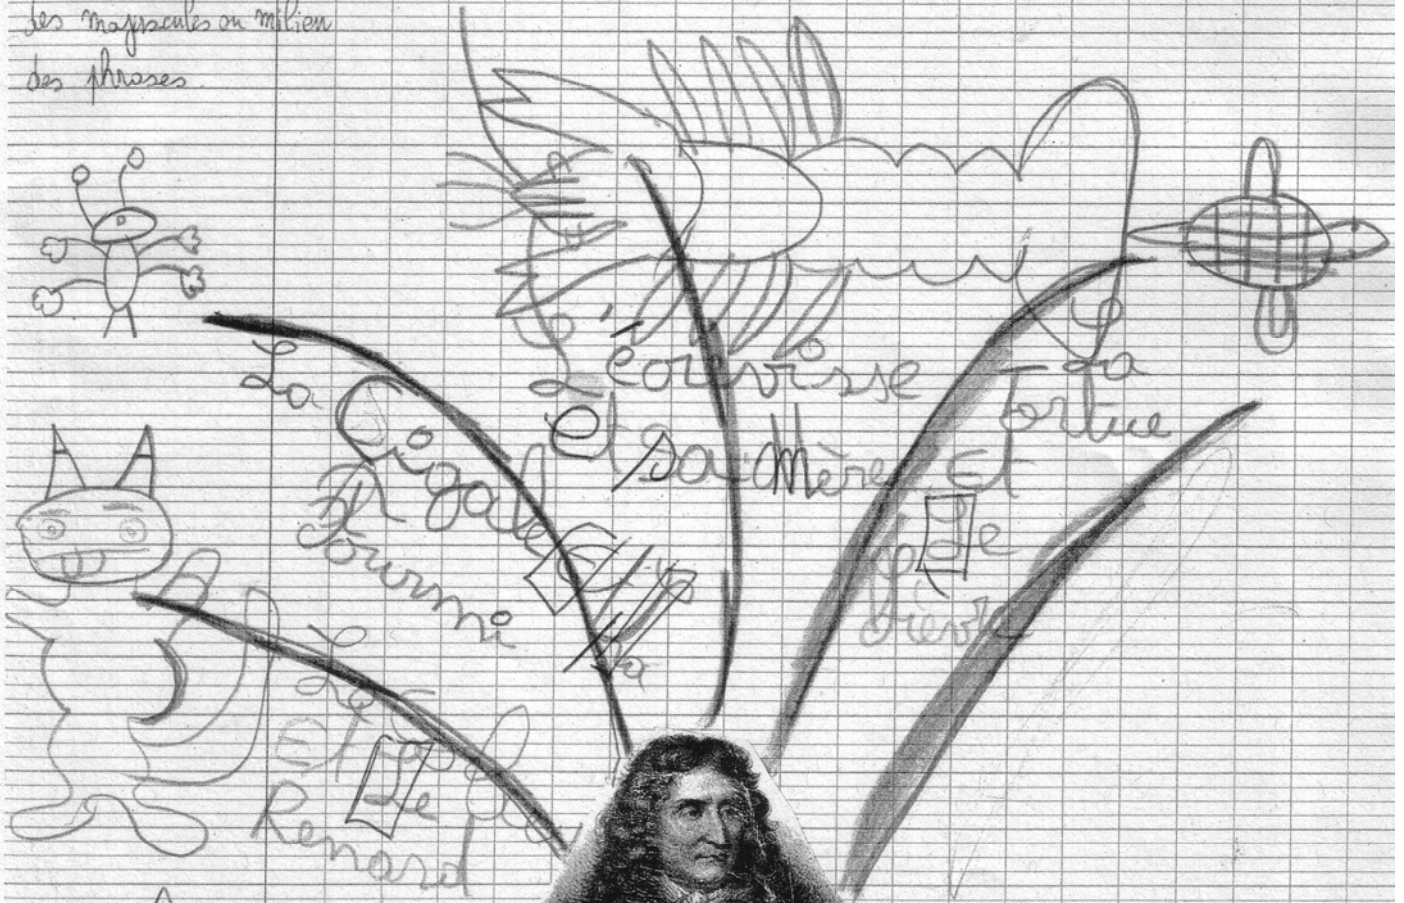 des majuscules au milieu
des phrases.
La Cigale Et
la
Fourmi
L'écrvisse
Et sa Mère
La
Tortue
Et
Le
lièvre
Le
Et Le
Renard